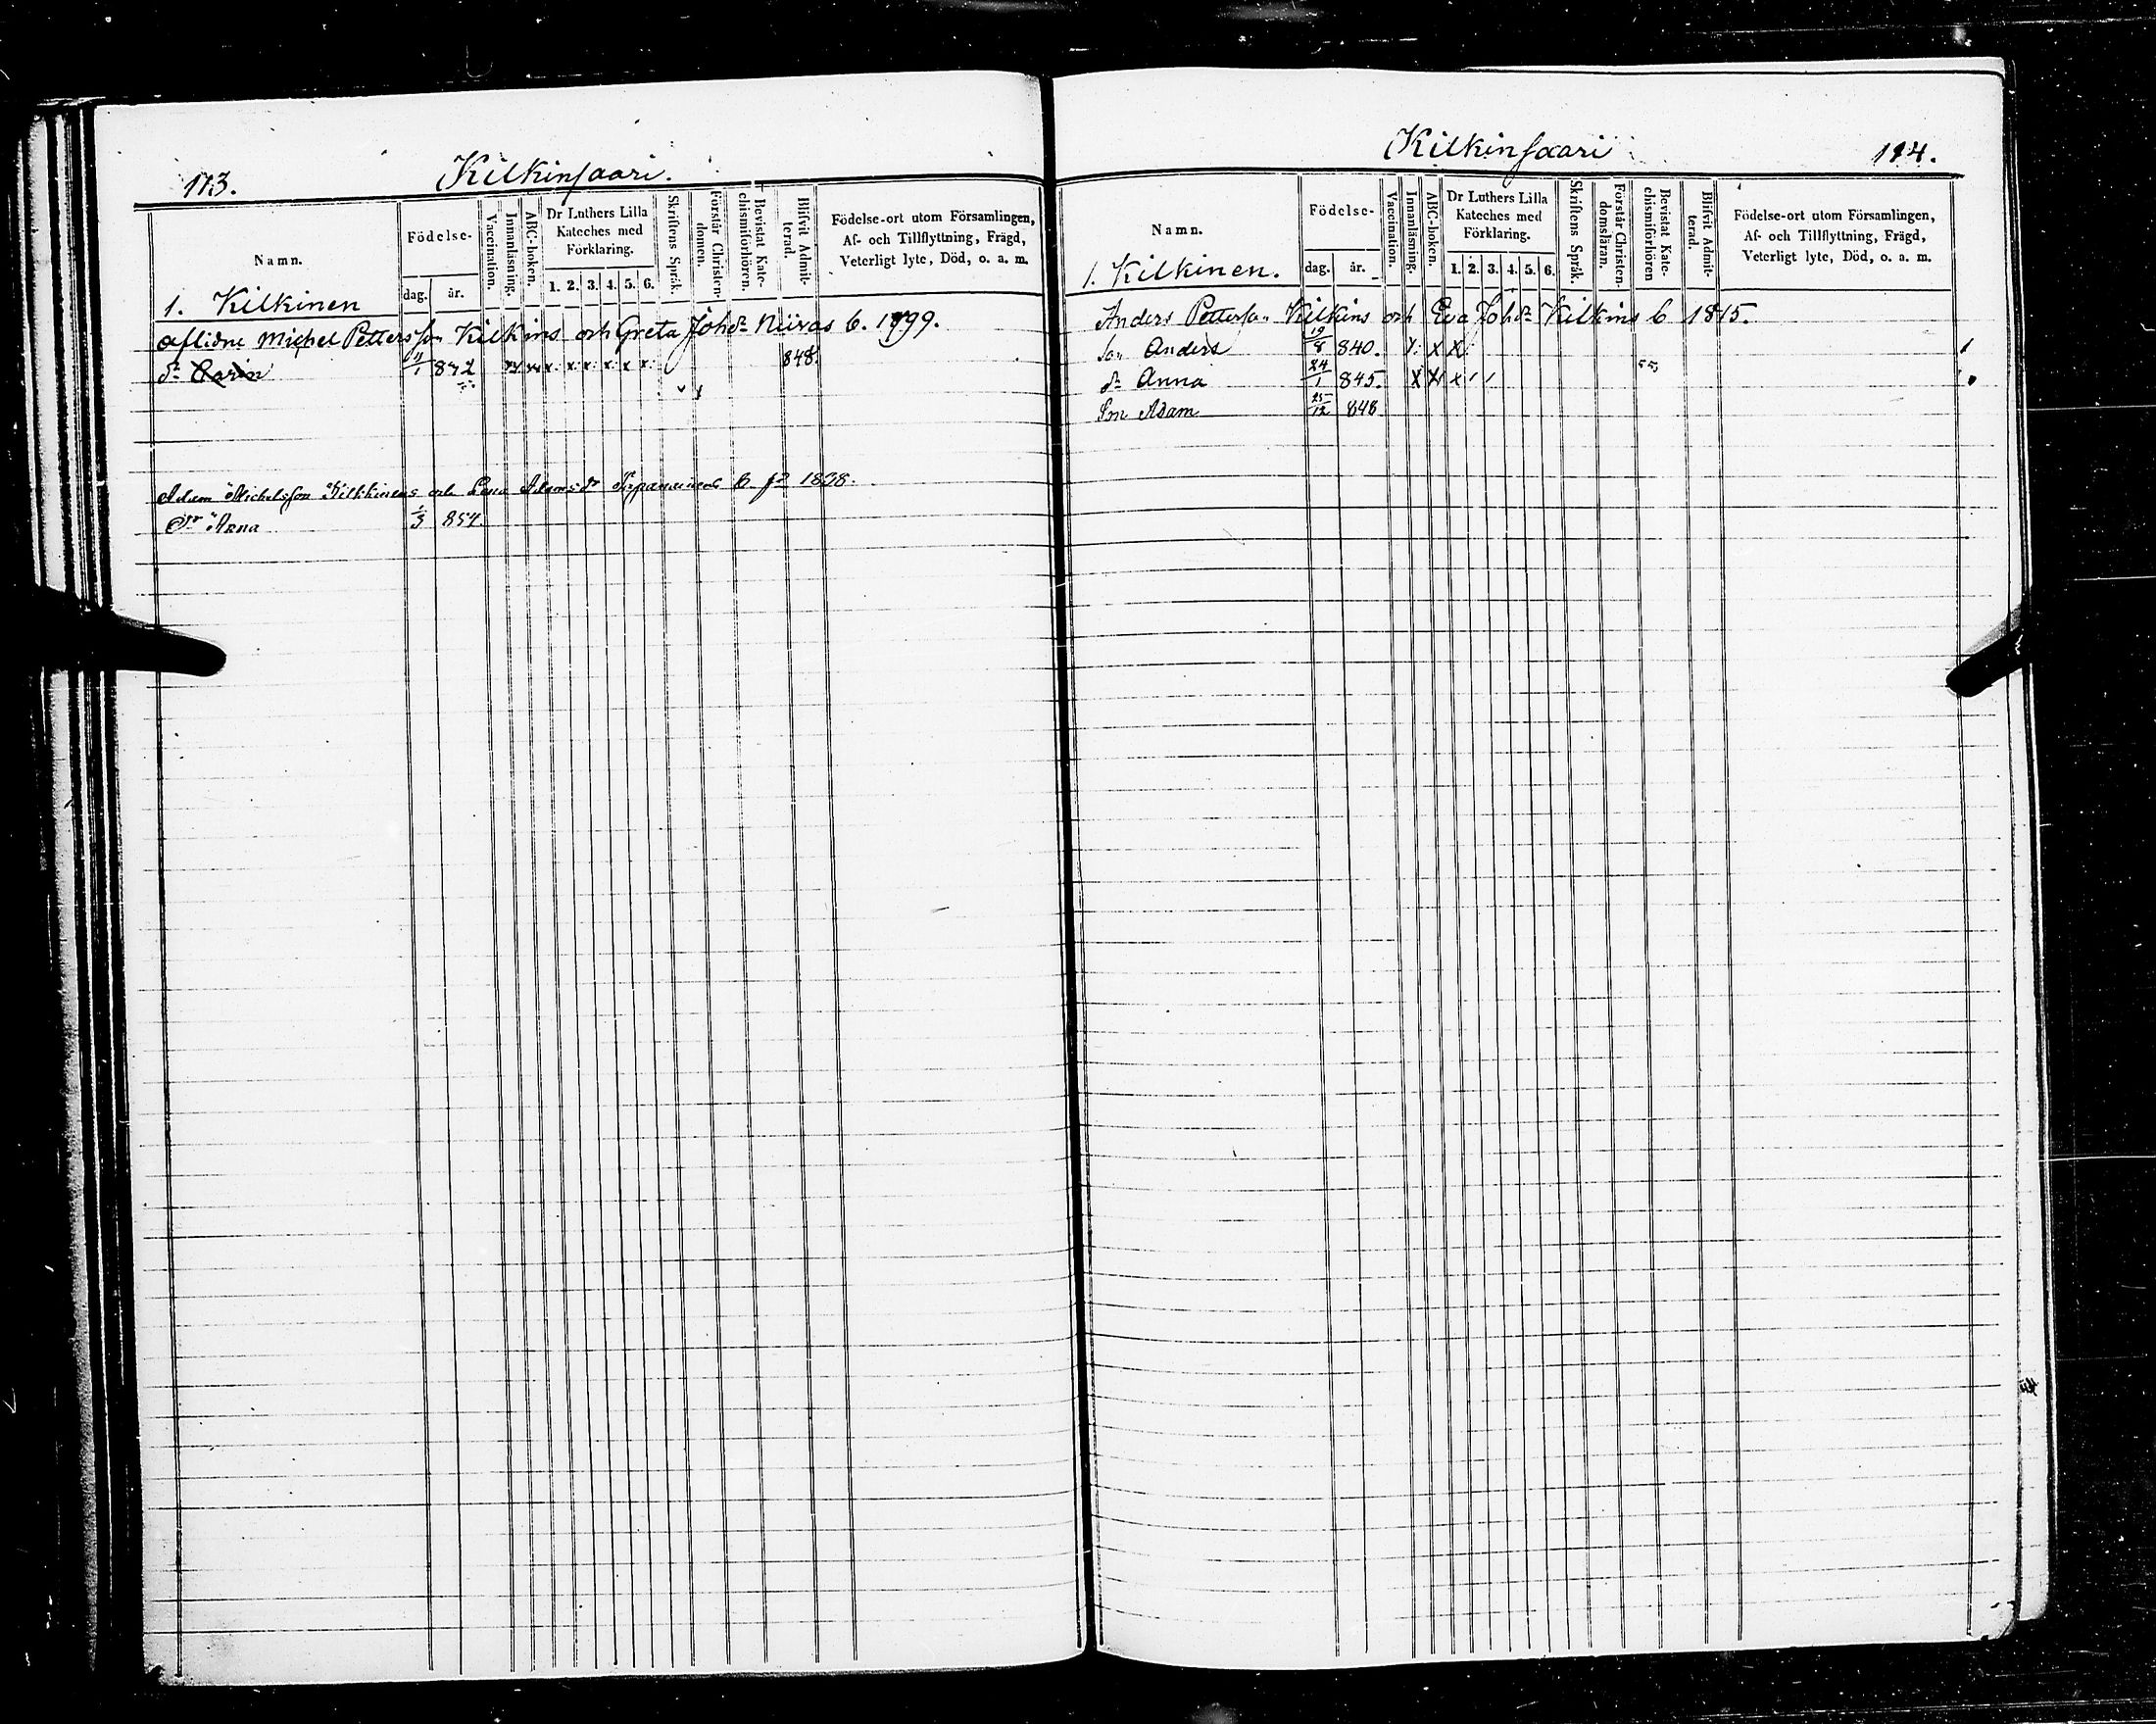 173.
Kilkinsaari.
Namn.
Födelse-
dag. år.
Vaccination.
Innanläsning.
ABC-boken.
Dr Luthers Lilla
Kateches med
Förklaring.
1. 2. 3. 4. 5. 6.
Skriftens Språk.
Förstår Christen-
domen.
Bevistat Kate-
chismiförhören.
Blifvit Admit-
terad.
Födelse-ort utom Församlingen,
Af- och Tillflyttning, Frägd,
Veterligt lyte, Död, o. a. m.
1. Kilkinen
aflidne Michel Pettersson Kilkins och Greta Johdr Niiras b. 1799.
dr Carin 11/1 842 848.
Adam Michelsson Kilkkinens och Lena Adamsdr b. fd 1828.
Dr Anna 1/3 854.
Kilkinsaari
174.
Namn.
Födelse-
dag. år.
Vaccination.
Innanläsning.
ABC-boken.
Dr Luthers Lilla
Kateches med
Förklaring.
1. 2. 3. 4. 5. 6.
Skriftens Språk.
Förstår Christen-
domsläran.
Bevistat Kate-
chismiförhören
Blifvit Admit-
terad.
Födelse-ort utom Församlingen,
Af- och Tillflyttning, Frägd,
Veterligt lyte, Död, o. a. m.
1. Kilkinen.
Anders Petterson Kilkins och Eva Johdr Kilkins b 1815.
son Anders 19/8 840. x x x
dr Anna 24/1 845. x x x
Son Adam 25/12 848